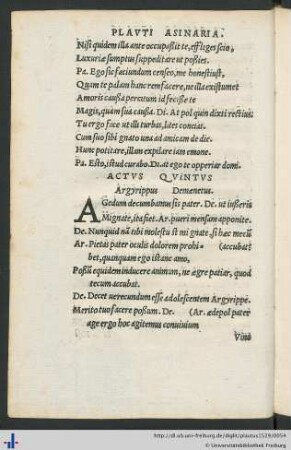 PLAVTI ASINARIA.
Nisi quidem illa ante occupassit te, effliges scio,
Luxuriæ sumptus suppeditare ut possies.
Pa. Ego sic faciundum censeo, me honestiust,
Quam te palam hanc rem facere, ne illa existumet
Amoris caussa percitum id fecisse te
Magis, quam sua caussa. Di. At pol quin dixti rectius.
Tu ergo face ut illi turbas, lites concias.
Cum suo sibi gnato una ad amicam de die.
Hunc potitare, illam expilare iam emone.
Pa. Esto, istud curabo. Di. at ego te opperiar domi.
ACTVS QVINTVS
Argyrippus Demenetus.
AGedum decumbamus sis pater. De. ut iusseris
Mi gnate, ita fiet. Ar. pueri mensam apponite.
De. Nunquid nam tibi molestum st mi gnate, si hæc mecum
Ar. Pietas pater oculis dolorem prohi- (accubat?
bet, quanquam ego istanc amo,
Possum equidem inducere animum, ne ægre patiar, quod
tecum accubat.
De. Decet uerecundum esse adolescentem Argyrippe.
Merito tuo facere possum. De. (Ar. ædepol pater
age ergo hoc agitemus conuiuium
Vino
http://dl.ub.uni-freiburg.de/diglit/plautus1529/0054
© Universitätsbibliothek Freiburg